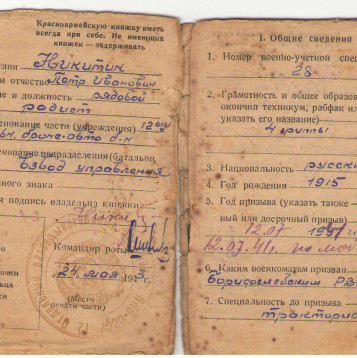 Красноармейскую книжку иметь
всегда при себе. Не имеющих
книжек — задерживать
Никитин
и отчество Петр Иванович
ие и должность рядовой
радист
енование части (учреждения) 12
броне-авто б-н
енование подразделения (батальон
Взвод управления
чного знака
и подпись владельца книжки
Командир роты
24 мая 1943 г.
(Место
печати части)
I. Общие сведения
1. Номер военно-учетной спец
28
2. Грамотность и общее образова
окончил техникум, рабфак ил
указать его название)
4 группы
3. Национальность русски
4. Год рождения 1915
5. Год призыва (указать также —
ный или досрочный призыв)
12.07 1941
12.07.41. по моб
6. Каким военкоматом призван
Борисоглебским РВ
7. Специальность до призыва
тракторис